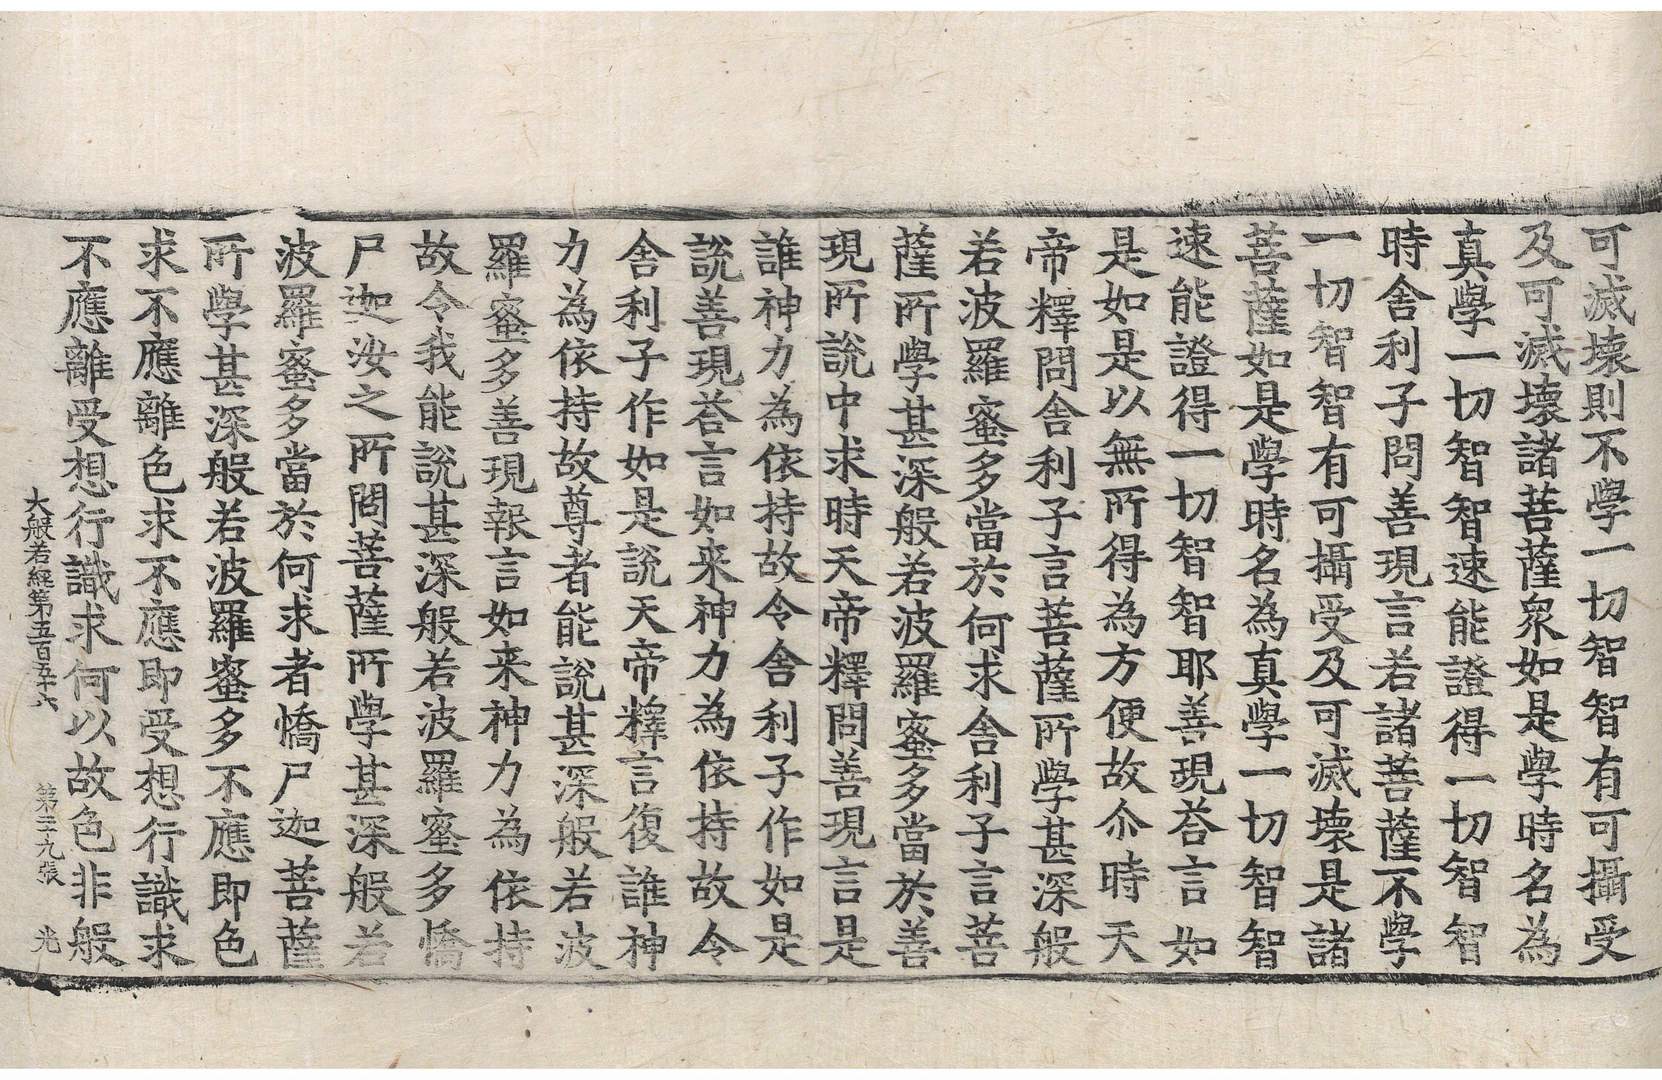 可滅壞則不學一切智智有可攝受
及可滅壞諸菩薩眾如是學時名為
真學一切智智速能證得一切智智
時舍利子問善現言若諸菩薩不學
一切智智有可攝受及可滅壞是諸
菩薩如是學時名為真學一切智智
速能證得一切智智耶善現荅言如
是如是以無所得為方便故尒時天
帝釋問舍利子言菩薩所學甚深般
若波羅蜜多當於何求舍利子言菩
薩所學甚深般若波羅蜜多當於善
現所說中求時天帝釋問善現言是
誰神力為依持故令舍利子作如是
說善現荅言如来神力為依持故令
舍利子作如是說天帝釋言復誰神
力為依持故尊者能說甚深般若波
羅蜜多善現報言如来神力為依持
故令我能說甚深般若波羅蜜多憍
尸迦汝之所問菩薩所學甚深般若
波羅蜜多當於何求者憍尸迦菩薩
所學甚深般若波羅蜜多不應即色
求不應離色求不應即受想行識求
不應離受想行識求何以故色非般
大般若經第五百五十六 第二十九張 光